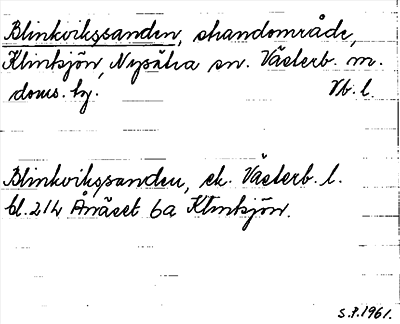 Blinkvikssanden, strandområde,
Klinksjön, Nysätra sn. Västerb. m.
doms. hg. Vb. l.
Blinkvikssanden, ek. Västerb. l.
bl. 214 Ånäset 6a Klinksjön.
S.F. 1961.